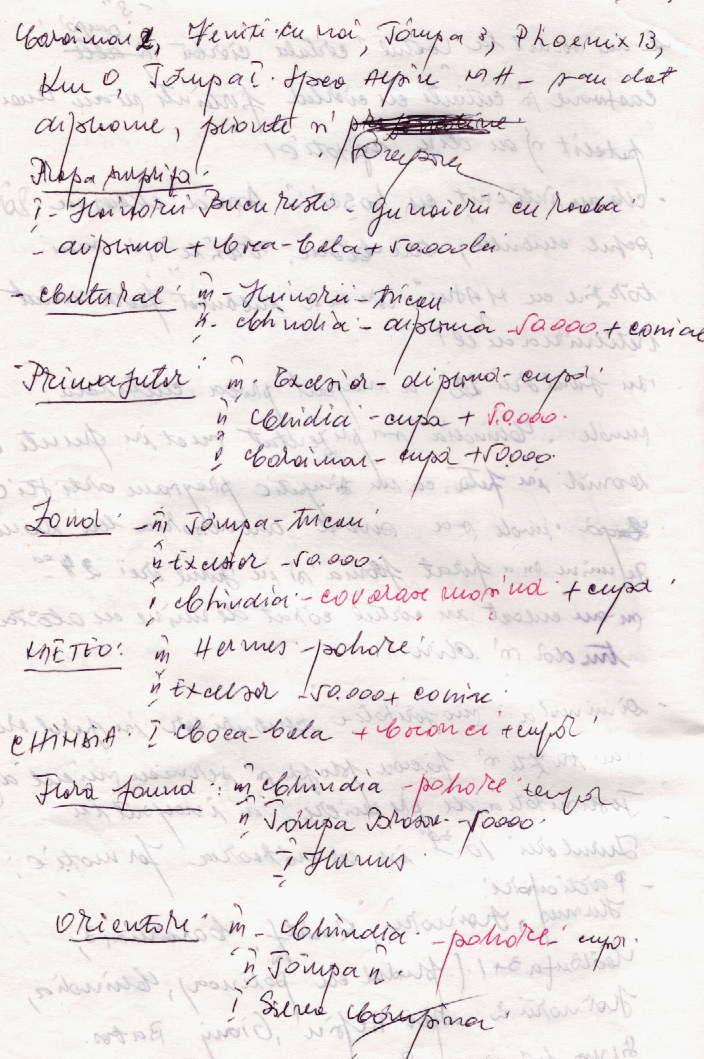 Caraiman 2, Veniti cu noi, Tâmpa 3, Phoenix 13,
Km 0, Tâmpa I. Speo Alpin MH - s-au dat
diplome, pliante si
Câmpina
I - Hoinarii Bucuresti - gunoierii cu roaba
- diploma + Coca-Cola + 50.000 lei
- Cultural: III - Hoinarii - tricou
II - Chindia - diploma 50.000 + coniac
Prim ajutor: III - Excelsior - diploma - cupa
II Chindia - cupa + 50.000.
I Caraiman - cupa + 50.000
Fond: - III Tâmpa - tricou
II Excelsior - 50.000.
I Chindia - covoras masina + cupa
METEO: III Hermes - pahare
II Excelsior - 50.000 + coniac
CHINDIA: I Coca-Cola + bocanci + cupa
Flora fauna: III Chindia - pahare + cupa
II Tâmpa Brasov - 50000.
I Hermes
Orientare: III - Chindia - pahare - cupa
II Tâmpa II.
I Câmpina